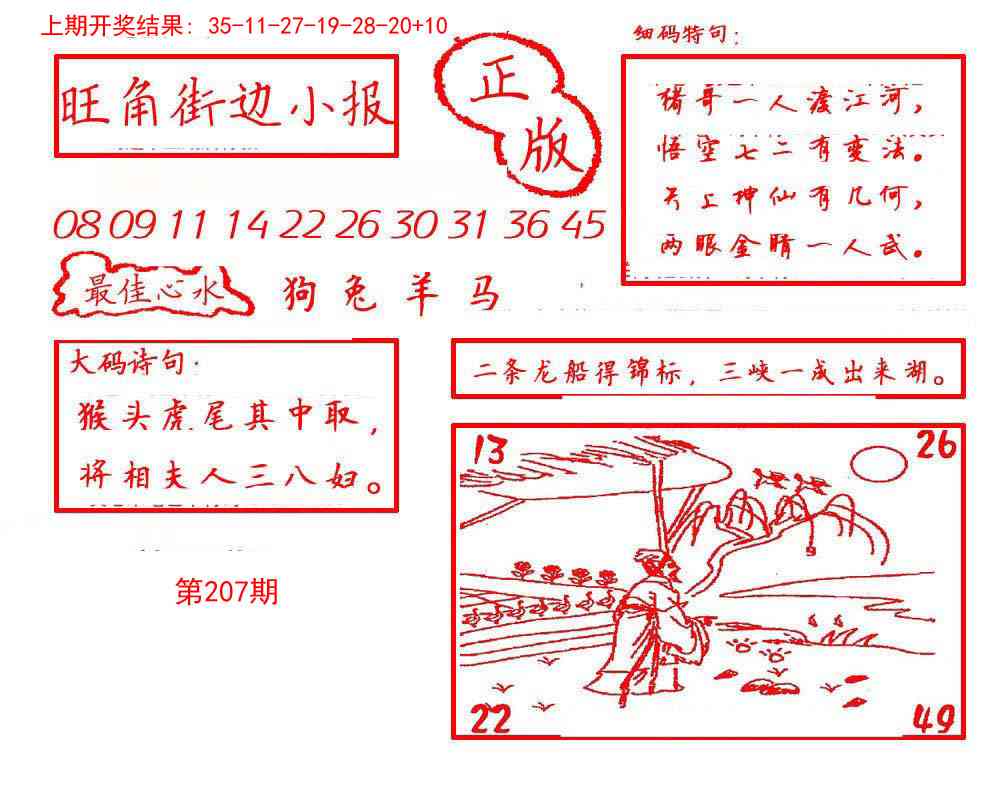 上期开奖结果：35-11-27-19-28-20+10
旺角街边小报
正版
细码特句：
猪哥一人渡江河，
悟空七二有变法。
天上神仙有几何，
两眼金睛一人武。
08 09 11 14 22 26 30 31 36 45
最佳心水
狗兔羊马
大码诗句：
猴头虎尾其中取，
将相夫人三八妇。
二条龙船得锦标，三峡一成出来湖。
13
26
22
49
第207期